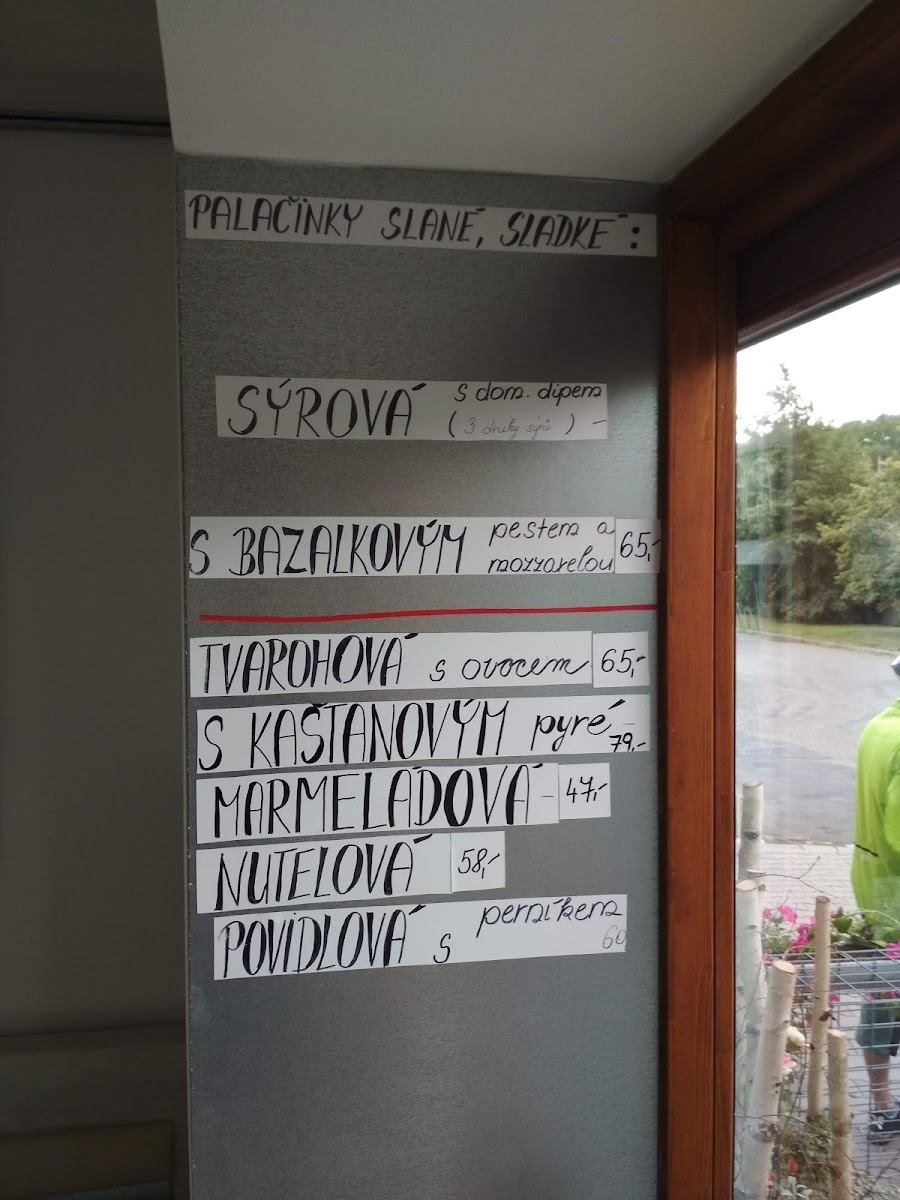 PALAČINKY SLANÉ, SLADKÉ :
SÝROVÁ s dom. dipem
(3 druhy sýrů) –
S BAZALKOVÝM pestem a
mozzarelou 65,-
TVAROHOVÁ s ovocem 65,-
S KAŠTANOVÝM pyré – 79,-
MARMELÁDOVÁ – 47,-
NUTELOVÁ 58,-
POVIDLOVÁ S perníkem 60